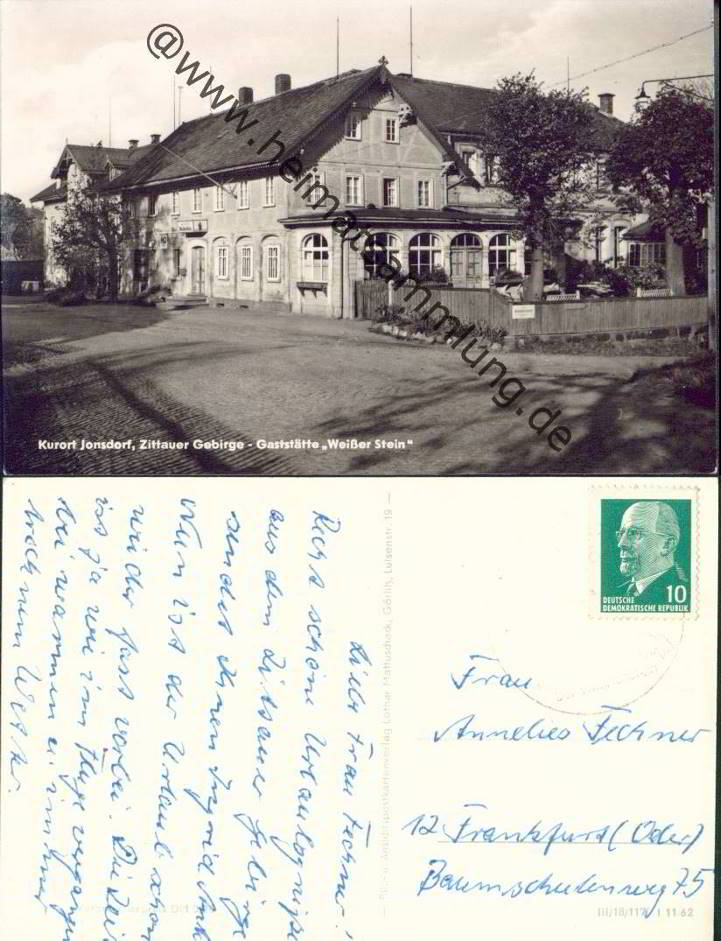 @www.heimatsammlung.de
Kurort Jonsdorf, Zittauer Gebirge - Gaststätte „Weißer Stein"
Liebe Frau Fechner!
Recht schöne Urlaubsgrüße
aus dem Zittauer Gebirge
sendet Ihnen Ingrid
Nun ist der Urlaub schon
wieder fast vorbei. Die Zeit
ist ja wie im Fluge vergangen
bei warmen u. immer
trocknem Wetter.
Ansichtspostkartenverlag Lothar Mattuscheck, Görlitz, Luisenstr. 19
10
DEUTSCHE
DEMOKRATISCHE REPUBLIK
Frau
Annelies Fechner
12 Frankfurt (Oder)
Baumschulenweg 75
III/18/117 I 11 62